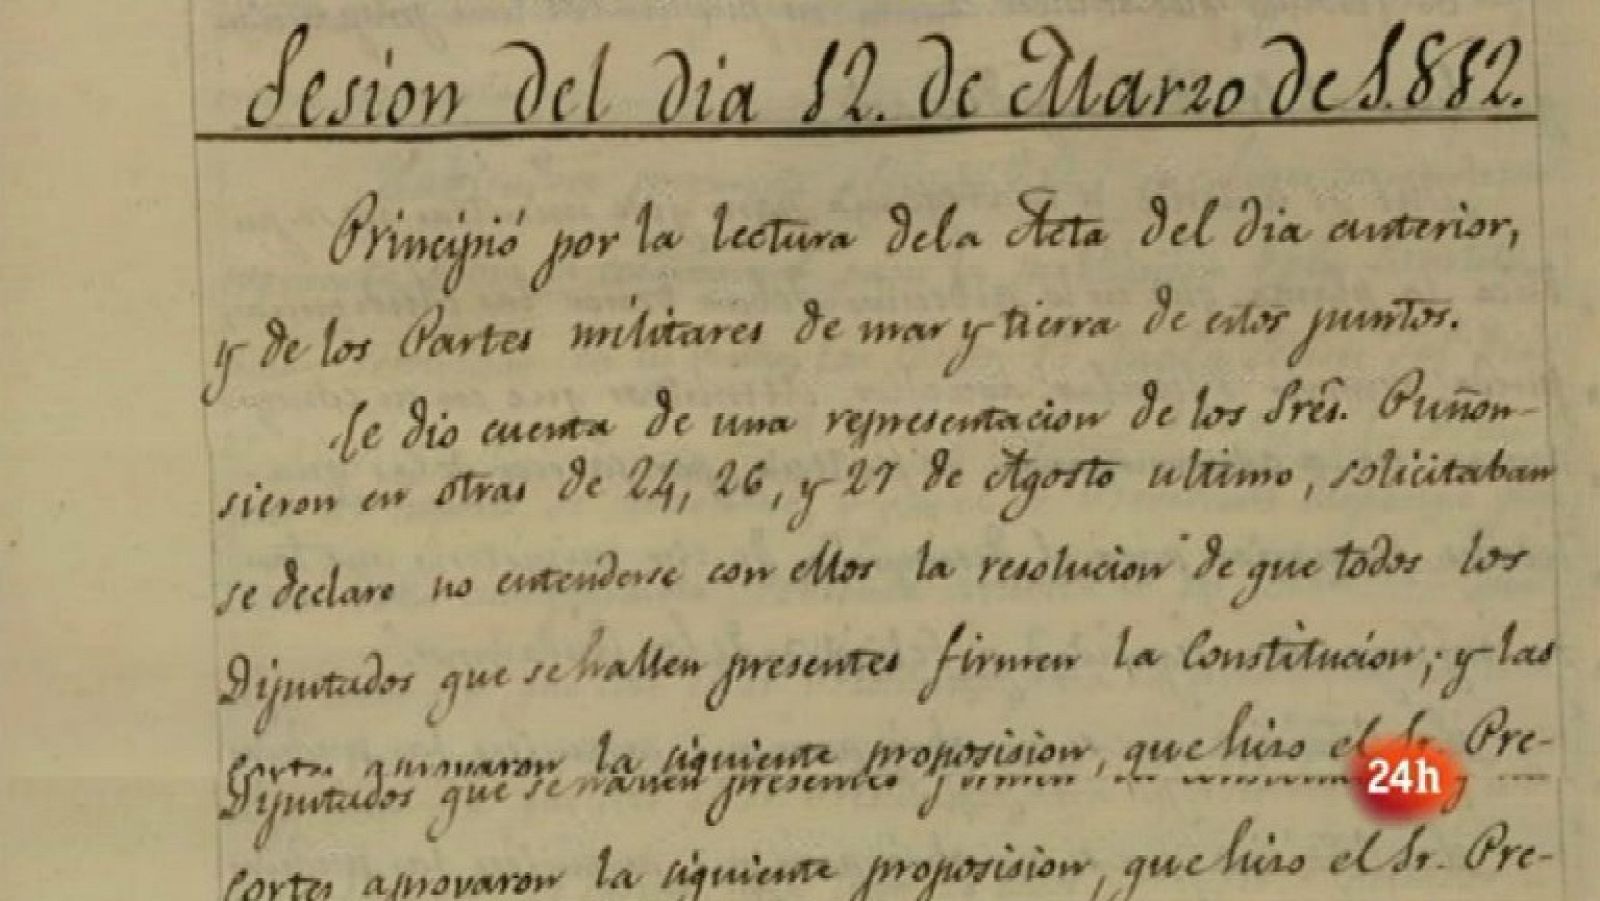 Sesion del dia 12. de Marzo de 1.812.
Principió por la lectura dela Acta del dia anterior,
y de los Partes militares de mar y tierra de estos puntos.
Se dio cuenta de una representacion de los Sres. Puñon-
sieron en otras de 24, 26, y 27 de Agosto ultimo, solicitaban
se declare no entenderse con ellos la resolucion de que todos los
Diputados que se hallen presentes firmen la Constitucion; y las
Cortes aprovaron la siguiente proposision, que hiso el Sr. Pre-
Diputados que se hallen presentes firmen la
24h
Cortes aprovaron la siguiente proposision, que hiso el Sr. Pre-